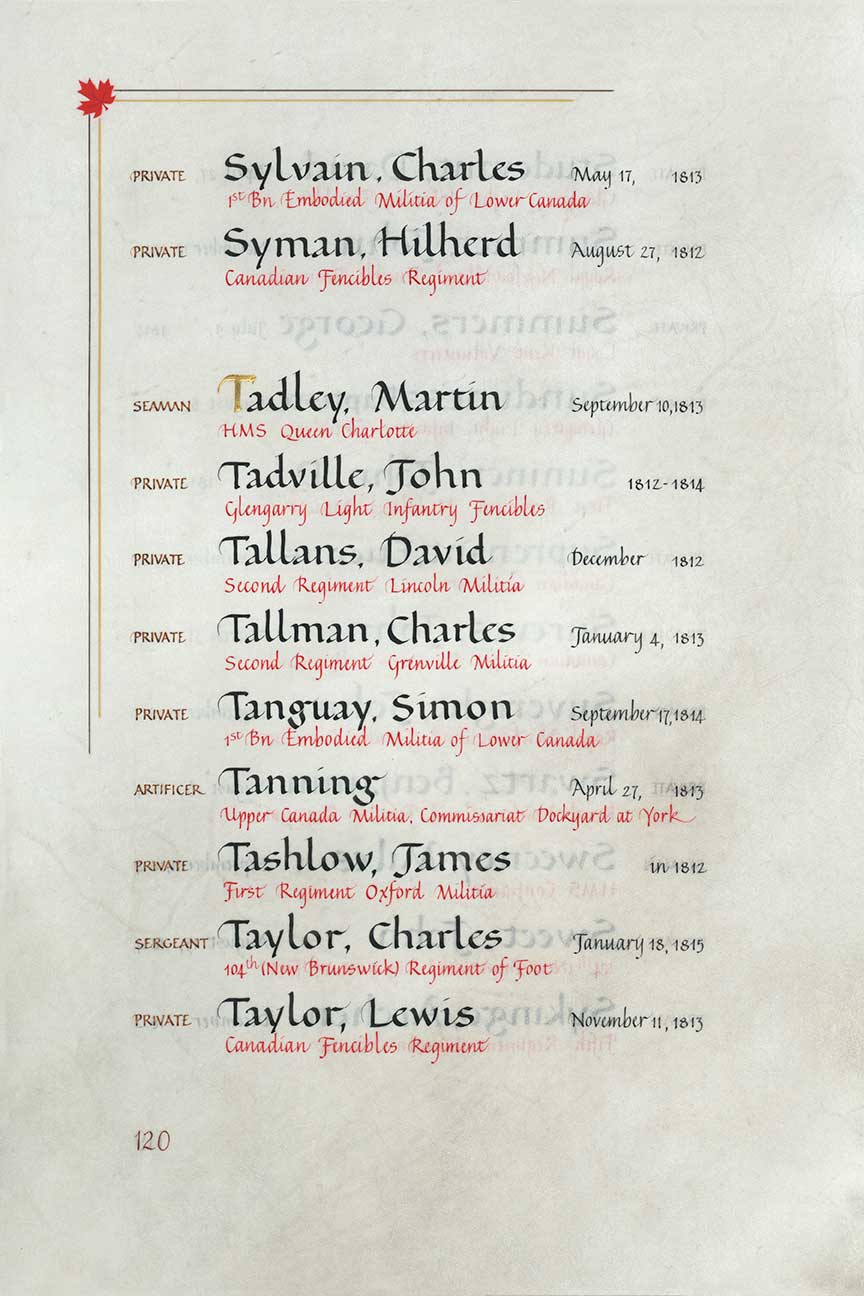 PRIVATE Sylvain, Charles May 17, 1813
1st Bn Embodied Militia of Lower Canada
PRIVATE Syman, Hilherd August 27, 1812
Canadian Fencibles Regiment
SEAMAN Tadley, Martin September 10, 1813
HMS Queen Charlotte
PRIVATE Tadville, John 1812-1814
Glengarry Light Infantry Fencibles
PRIVATE Tallans, David December 1812
Second Regiment Lincoln Militia
PRIVATE Tallman, Charles January 4, 1813
Second Regiment Grenville Militia
PRIVATE Tanguay, Simon September 17, 1814
1st Bn Embodied Militia of Lower Canada
ARTIFICER Tanning April 27, 1813
Upper Canada Militia, Commissariat Dockyard at York
PRIVATE Tashlow, James in 1812
First Regiment Oxford Militia
SERGEANT Taylor, Charles January 18, 1815
104th (New Brunswick) Regiment of Foot
PRIVATE Taylor, Lewis November 11, 1813
Canadian Fencibles Regiment
120